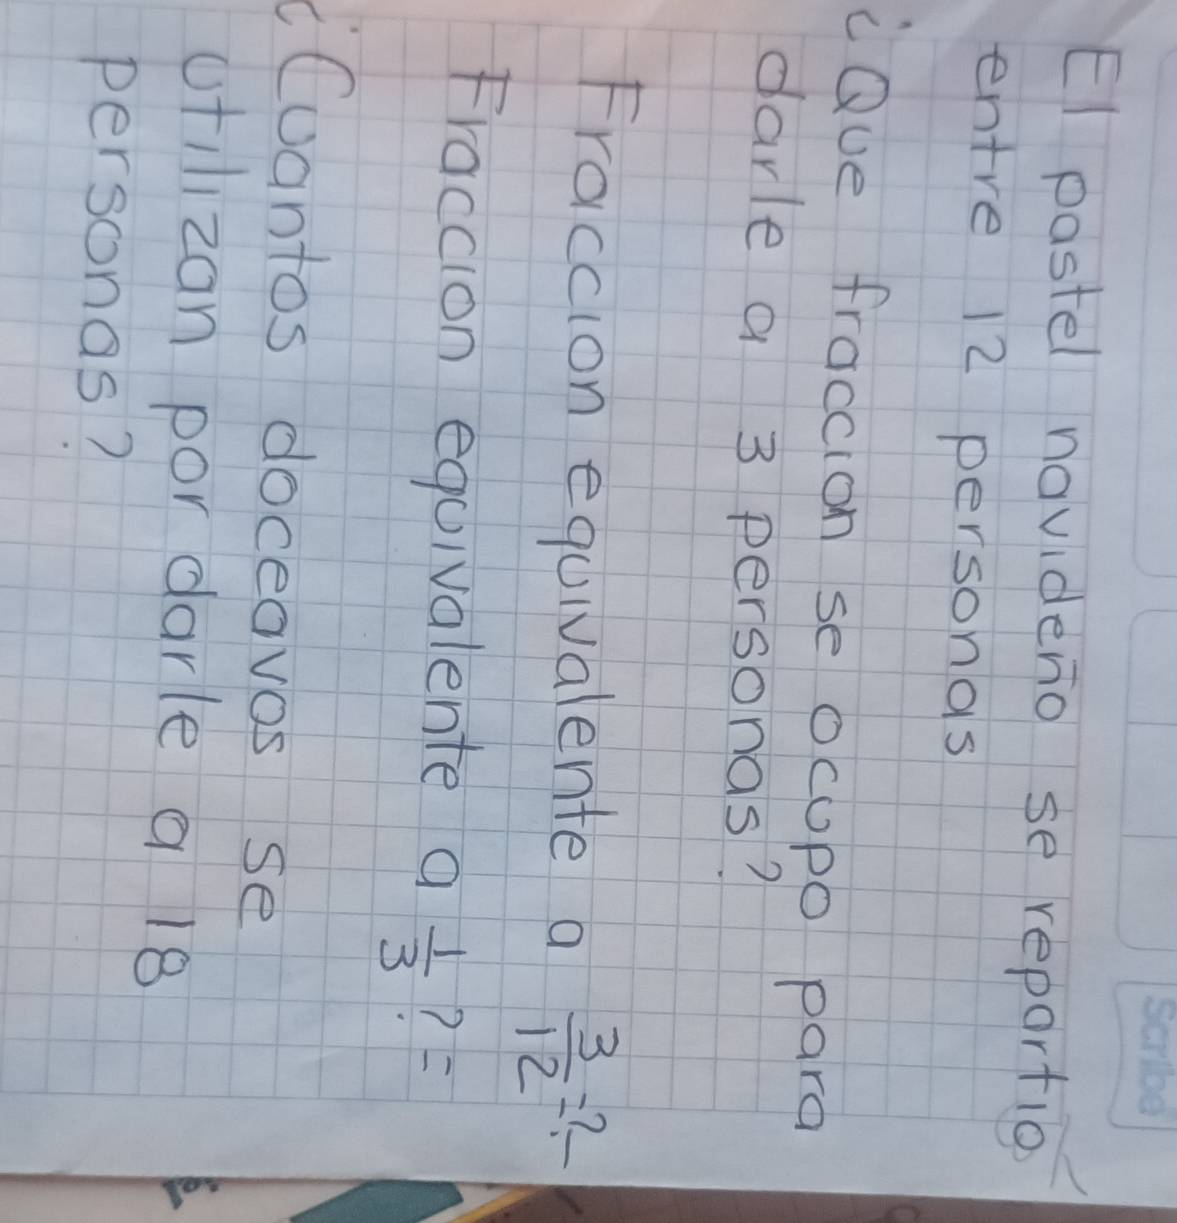 Scribe
El pastel navideño se repartió
entre 12 personas
¿Que fraccion se ocupo para
darle a 3 personas?
Fraccion equivalente a 3/12 = ?
Fraccion equivalente a 1/3 ? =
¿Cuantos doceavos se
utilizan por darle a 18
personas?